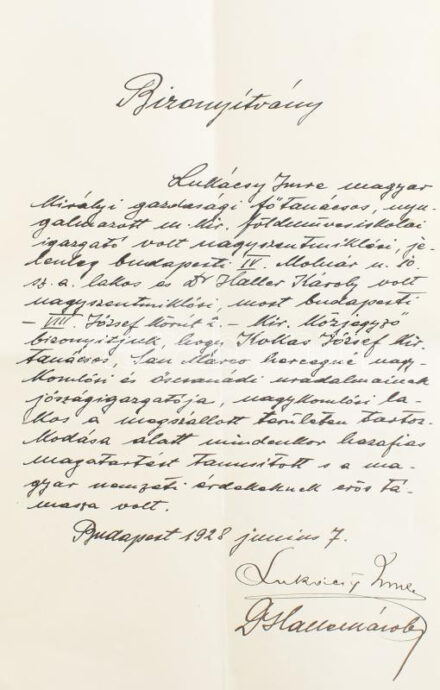 Bizonyítvány
Lukácsy Imre magyar
királyi gazdasági főtanácsos, nyu-
galmazott m. kir. földmívesiskolai
igazgató volt nagyszentmiklósi, je-
lenleg budapesti IV. Molnár u.
sz. a. lakos és Dr Haller Károly volt
nagyszentmiklósi, most budapesti
- VIII. József körút - kir. közjegyző
bizonyítjuk, hogy Kokas József kir.
tanácsos, San Marco hercegné nagy-
komlósi és őscsanádi uradalmainak
jószágigazgatója, nagykomlósi la-
kos a megszállott területen tartóz-
kodása alatt mindenkor hazafias
magatartást tanusított s a ma-
gyar nemzeti érdekeknek erős tá-
masza volt.
Budapest 1928 junius 7.
Lukácsy Imre
Dr Haller Károly